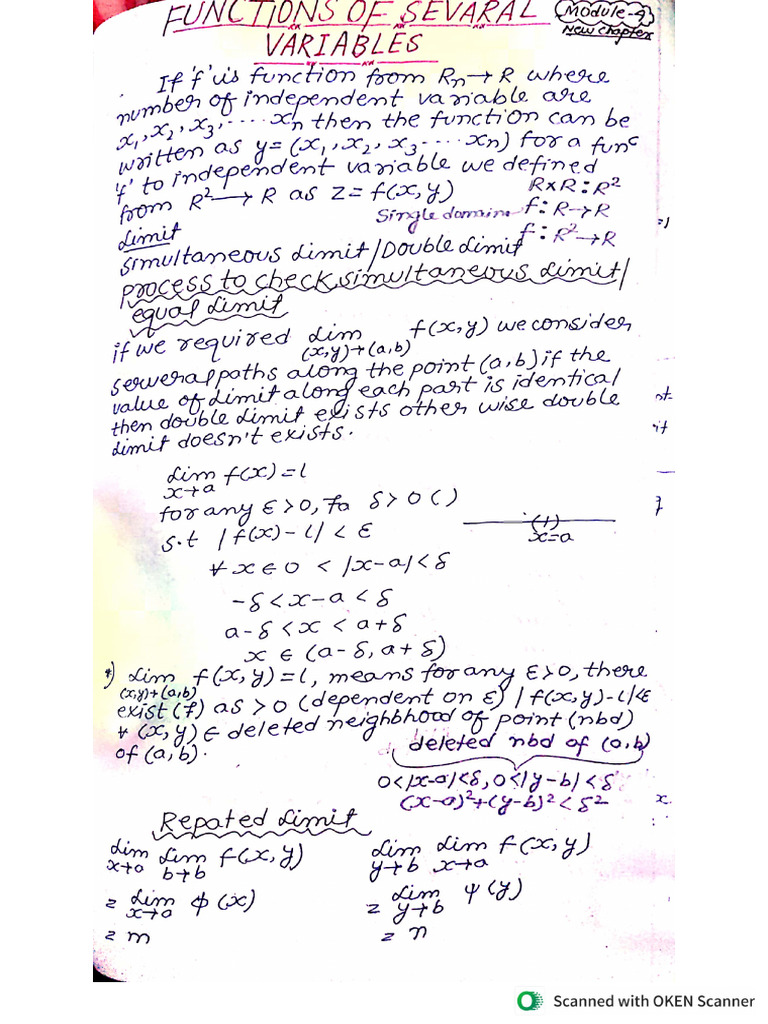 FUNCTIONS OF SEVARAL
Module-4
New chapter
VARIABLES
If 'f' is function from Rn→R where
number of independent variable are
x₁, x₂, x₃, .... xn then the function can be
written as y = (x₁, x₂, x₃ .... xn) for a funᶜ
'f' to independent variable we defined
from R²→R as z = f(x,y)
R×R : R²
Single domain f : R→R
f : R²→R
Limit
Simultaneous Limit/Double Limit
process to check simultaneous Limit/
equal Limit
if we required Lim f(x,y) we consider
(x,y)→(a,b)
serweral paths along the point (a,b) if the
value of Limit along each part is identical
then double Limit exists other wise double
Limit doesn't exists.
Lim f(x) = l
x→a
for any ε>0, Fa δ>0 ()
(1)
x=a
s.t |f(x)-l| < ε
∀ x ∈ 0 < |x-a| < δ
-δ < x-a < δ
a-δ < x < a+δ
x ∈ (a-δ, a+δ)
*) Lim f(x,y) = l, means for any ε>0, there
(x,y)→(a,b)
exist (f) as >0 (dependent on ε) |f(x,y)-l|<ε
∀ (x,y) ∈ deleted neighbhood of point (nbd)
of (a,b).
deleted nbd of (a,b)
0<|x-a|<δ, 0<|y-b|<δ
(x-a)²+(y-b)² < δ²
Repated Limit
Lim Lim f(x,y) Lim Lim f(x,y)
x→a b→b y→b x→a
= Lim ϕ(x) = Lim ψ(y)
x→a y→b
= m = n
Scanned with OKEN Scanner